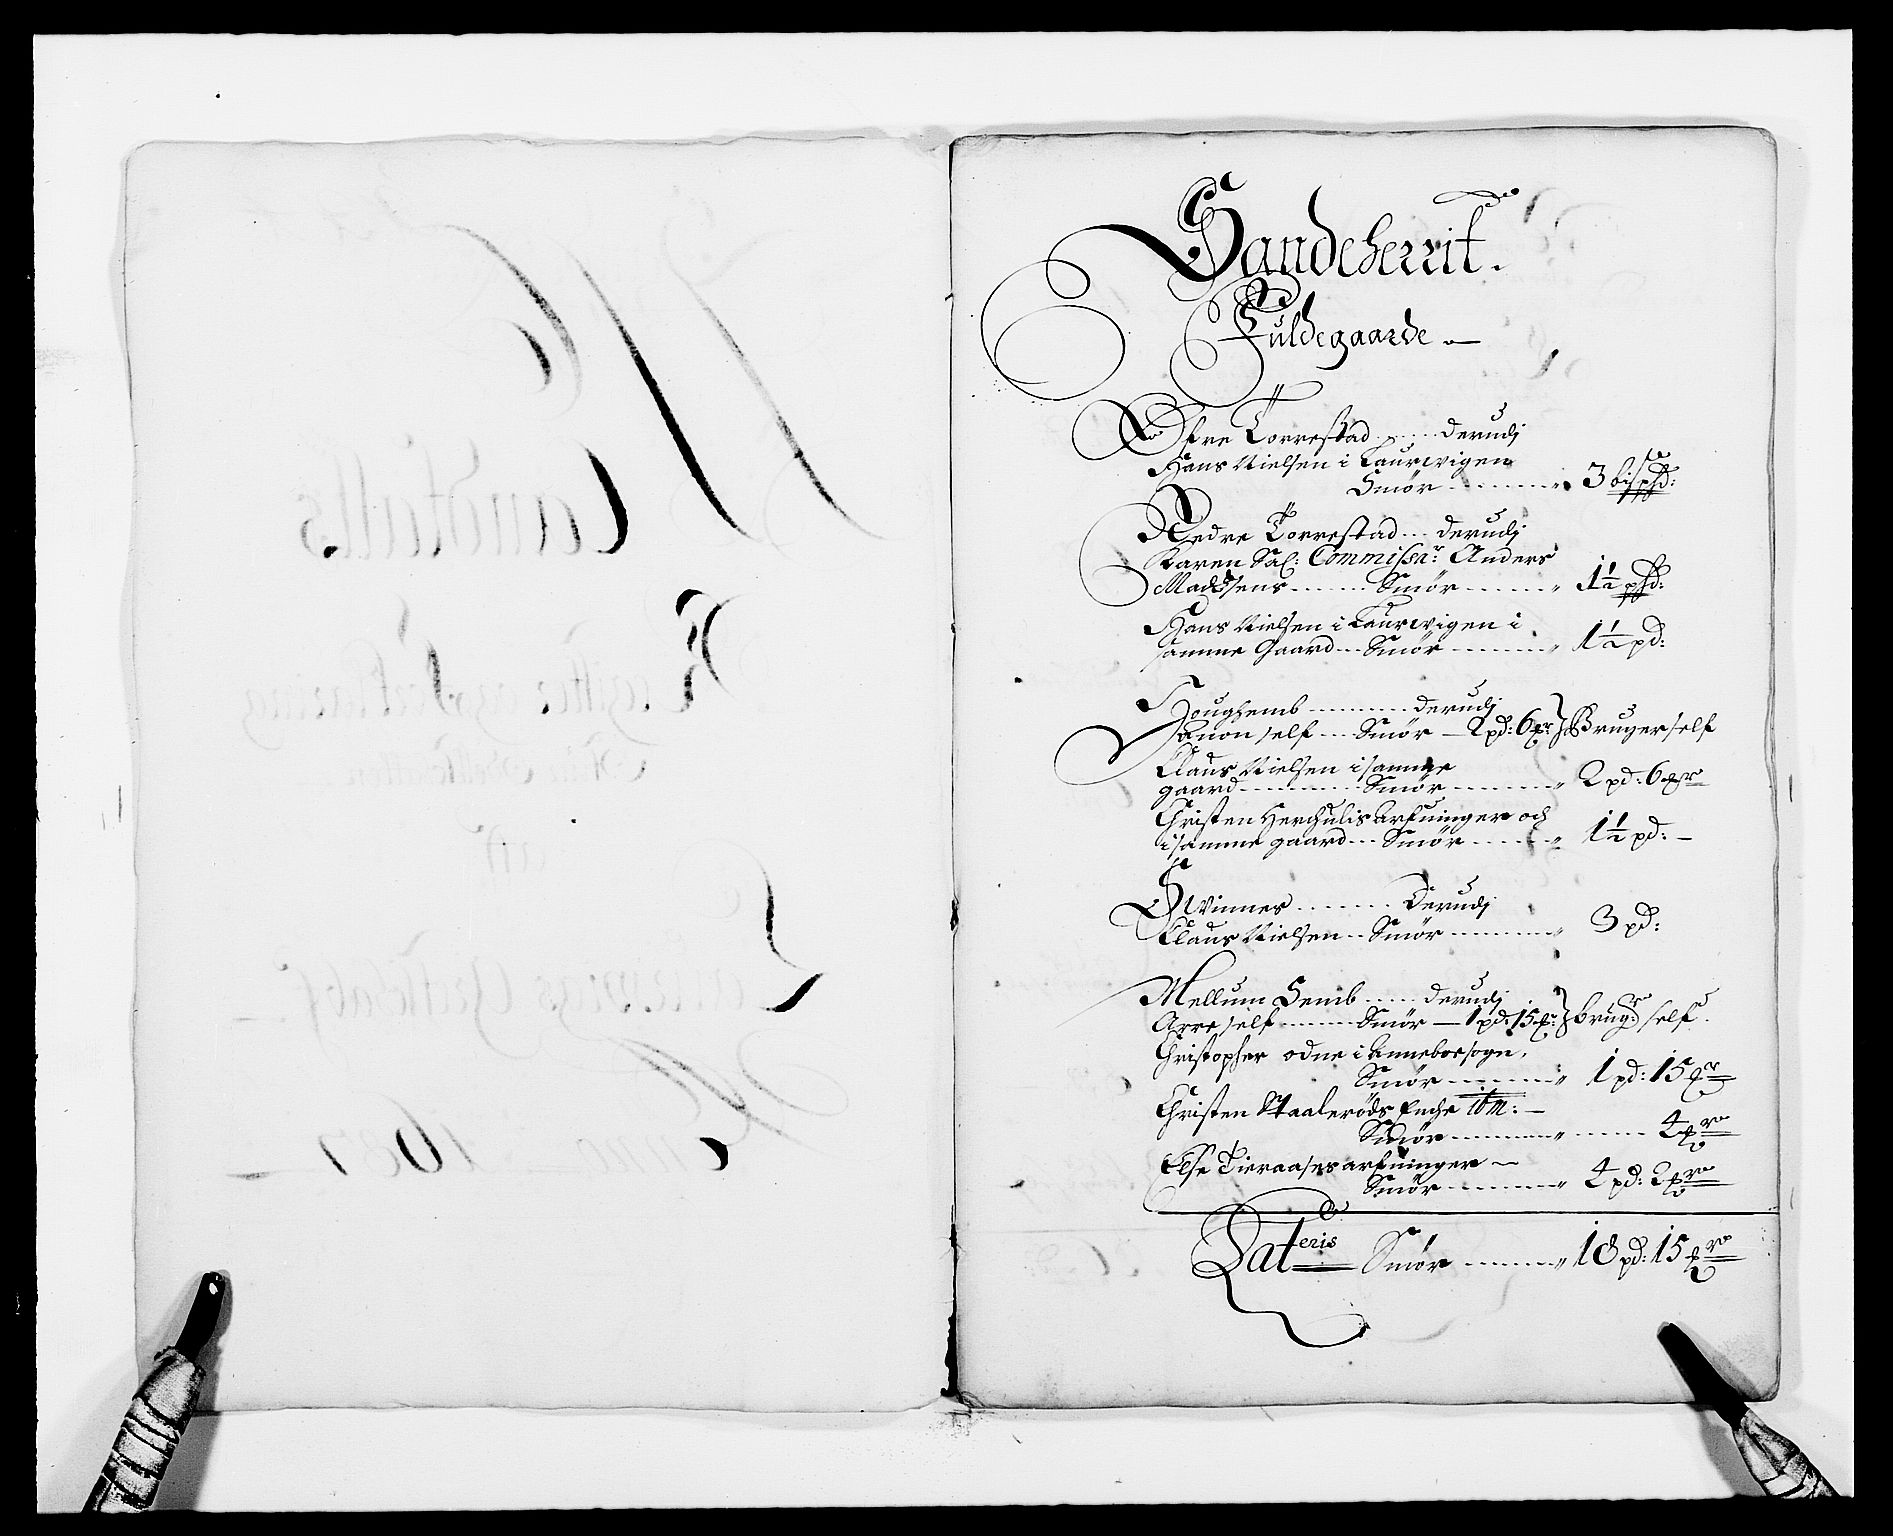 Sandeherrit.
Fuldegaarde
Øfre Torrestad ...... derudj
Hans Nielsen i Laurwigen
Smør ........ " 3 bispd:
Nedre Torrestad ... derudj
Karen Sal: Commissr: Anders
Madsens ....... Smør ....... " 1½ pd:
Hans Nielsen i Laurwigen i
samme Gaard ... Smør ........ " 1½ pd:
Hougsemb ......... derudj
Hanon self ... Smør — 2 pd: 6 } Bruger self
Claus Nielsen i samme
gaard ........... Smør ........ " 2 pd: 6
Christen Herchulis arfuinger och
i samme gaard ... Smør ....... " 1½ pd: —
Swinnes ........ Derudj
Claus Nielsen .. Smør ......... " 3 pd:
Mellum Semb ..... derudj
Arre self ....... Smør — 1 pd: 15 } brugr: self
Christopher odne i anneboe sogn,
Smør ........ " 1 pd: 15
Christen Staalerøds Enche ibm: —
Smør ........ " ...... 4
Else Tieraases arfuinger —
Smør ........ " 4 pd: 2
Lateris Smør ........ " 18 pd: 15